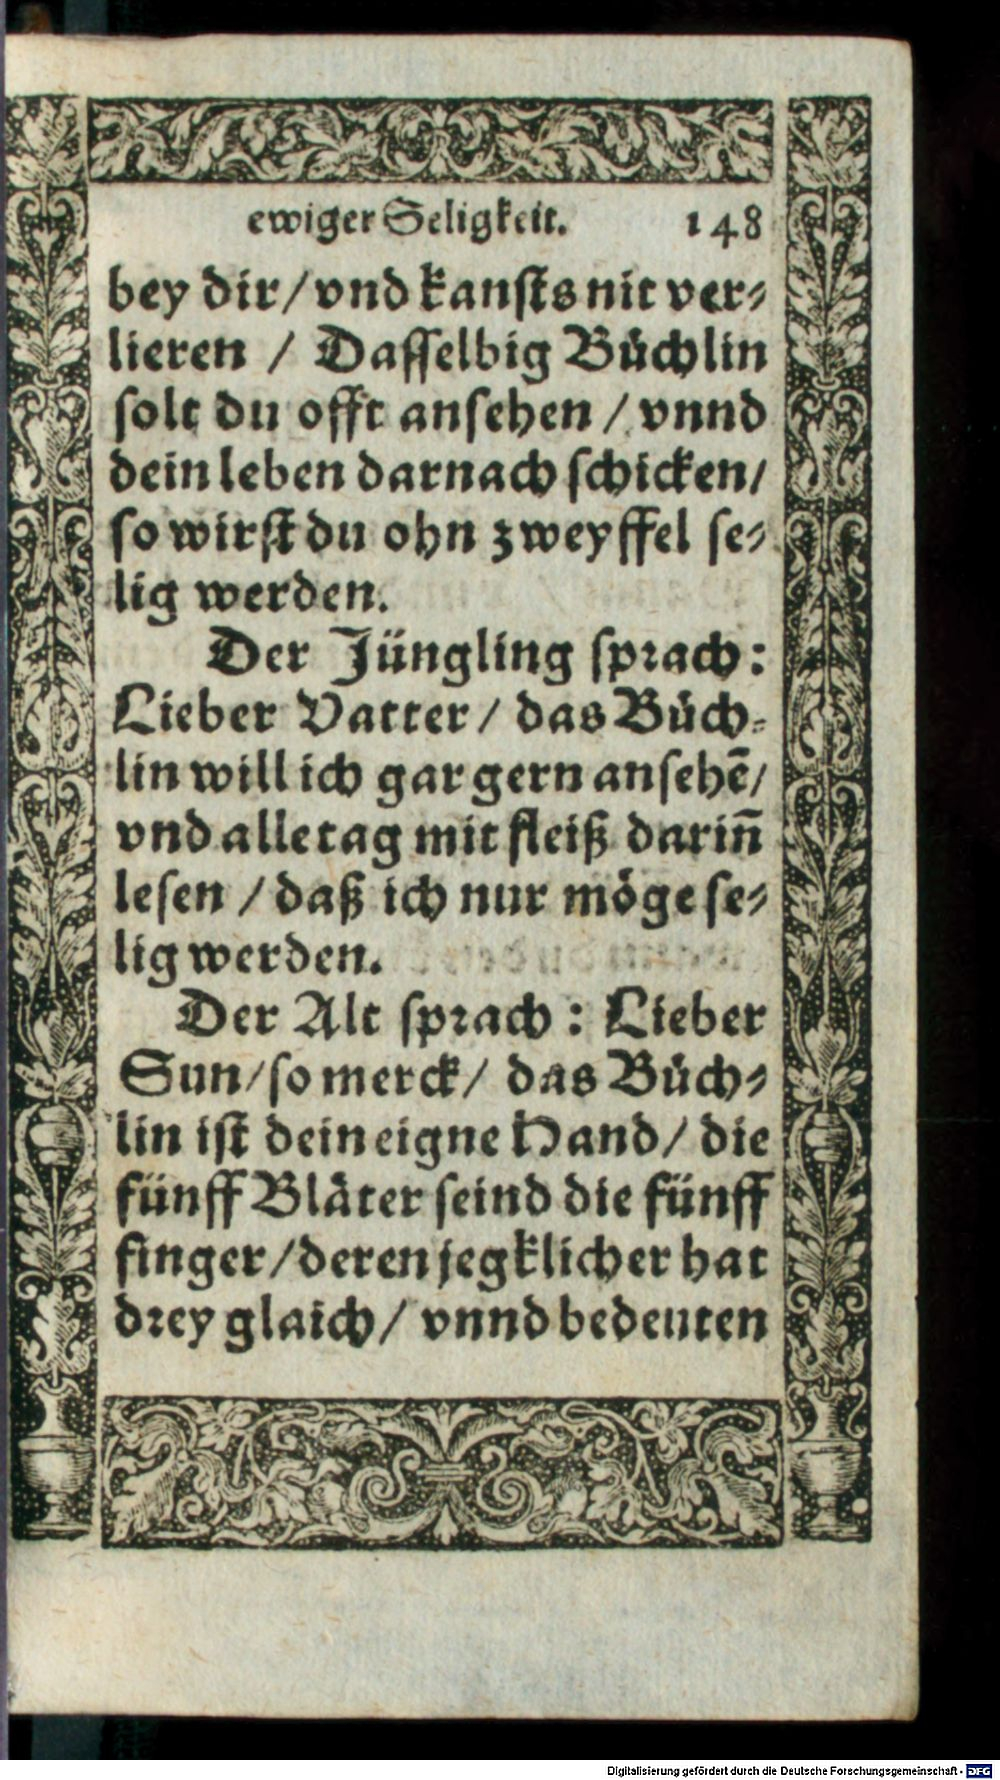 ewiger Seligkeit. 148
bey dir / vnd kanſts nit ver⸗
lieren / Daſſelbig Bůchlin
ſolt du offt anſehen / vnnd
dein leben darnach ſchicken /
ſo wirſt du ohn zweyffel ſe⸗
lig werden.
Der Jüngling ſprach :
Lieber Vatter / das Bůch⸗
lin will ich gar gern anſehē /
vnd alle tag mit fleiß darin̄
leſen / daß ich nur möge ſe⸗
lig werden.
Der Alt ſprach : Lieber
Sun / ſo merck / das Bůch⸗
lin iſt dein eigne Hand / die
fünff Bläter ſeind die fünff
finger / deren jegklicher hat
drey glaich / vnnd bedeuten
Digitalisierung gefördert durch die Deutsche Forschungsgemeinschaft - DFG